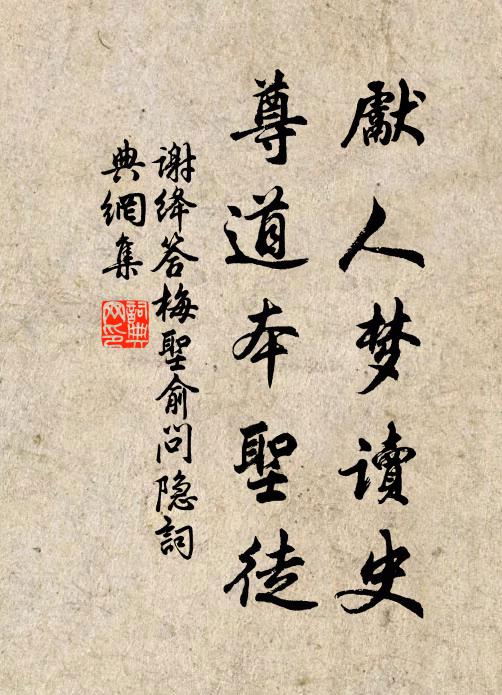 獻人梦讀史
尊道本聖徒
谢绛答梅聖俞问隐詞
典網集
詞典
网印